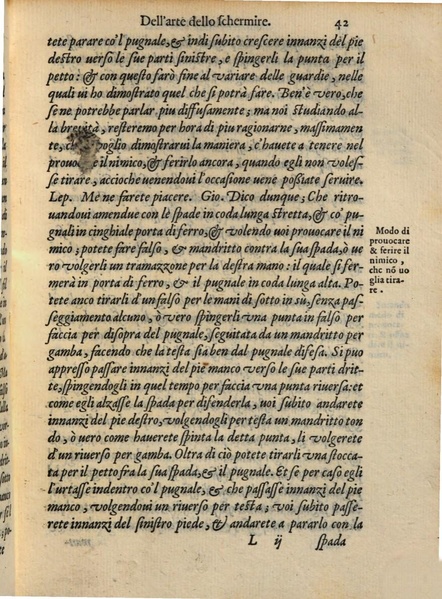 Dell'arte dello schermire. 42
tete parare co'l pugnale, & indi subito crescere innanzi del pie
destro uerso le sue parti sinistre, e spingerli la punta per il
petto: & con questo farò fine al uariare delle guardie, nelle
quali ui ho dimostrato quel che si potrà fare. Ben'è vero, che
se ne potrebbe parlar piu diffusamente; ma noi studiando al-
la breuità, resteremo per hora di piu ragionarne, massimamen
te, voglio dimostrarui la maniera, c'hauete a tenere nel
prouocare il nimico, & ferirlo ancora, quando egli non voles-
se tirare, accioche uenendoui l'occasione uene poßiate seruire.
Lep. Me ne farete piacere. Gio. Dico dunque; Che ritro-
uandoui amendue con le spade in coda lunga stretta, & co' pu-
gnali in cinghiale porta di ferro, & volendo uoi prouocare il ni
mico; potete fare falso, & mandritto contra la sua spada, ò ue
ro volgerli un tramazzone per la destra mano: il quale si fer-
merà in porta di ferro, & il pugnale in coda lunga alta. Po-
tete anco tirarli d'un falso per le mani di sotto in sù, senza pas-
seggiamento alcuno, ò vero spingerli vna punta in falso per
faccia per disopra del pugnale, seguitata da un mandritto per
gamba, facendo che la testa stia ben dal pugnale difesa. Si puo
appresso passare innanzi del pie manco verso le sue parti drit-
te, spingendogli in quel tempo per faccia vna punta riuersa: et
come egli alzasse la spada per difenderla, uoi subito andarete
innanzi del pie destro, volgendogli per testa un mandritto ton
do, ò uero come hauerete spinta la detta punta, li volgerete
d'un riuerso per gamba. Oltra di ciò potete tirarli vna stocca-
ta per il petto fra la sua spada, & il pugnale. Et se per caso egli
l'urtasse indentro co'l pugnale, & che passasse innanzi del pie
manco, volgendoui un riuerso per testa; voi subito passe-
rete innanzi del sinistro piede, & andarete a pararlo con la
L ij spada
Modo di
prouocare
& ferire il
nimico,
che nō uo
glia tira-
re.